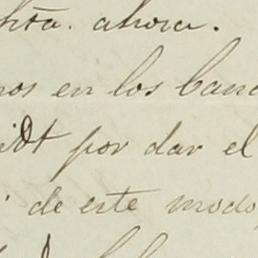 hta. ahora.
nos en los banc
idt por dar el
de este modo,